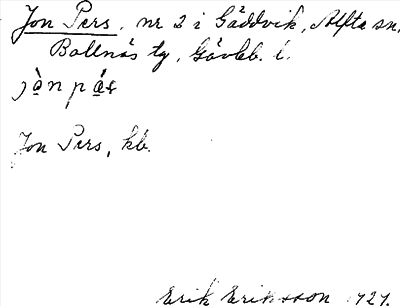 Jon Pers, nr 2 i Gäddvik, Alfta sn,
Bollnäs tg, Gävleb. l.
jὰn pás
Jon Pers, kb.
Erik Eriksson 1927.